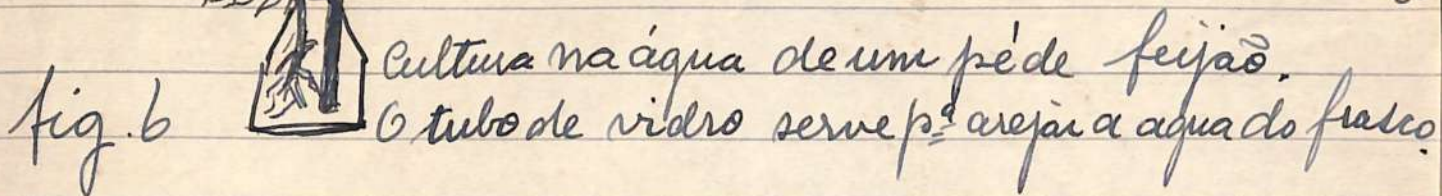 Cultura na água de um pé de feijão.
fig. 6 O tubo de vidro serve pª arejar a agua do frasco.